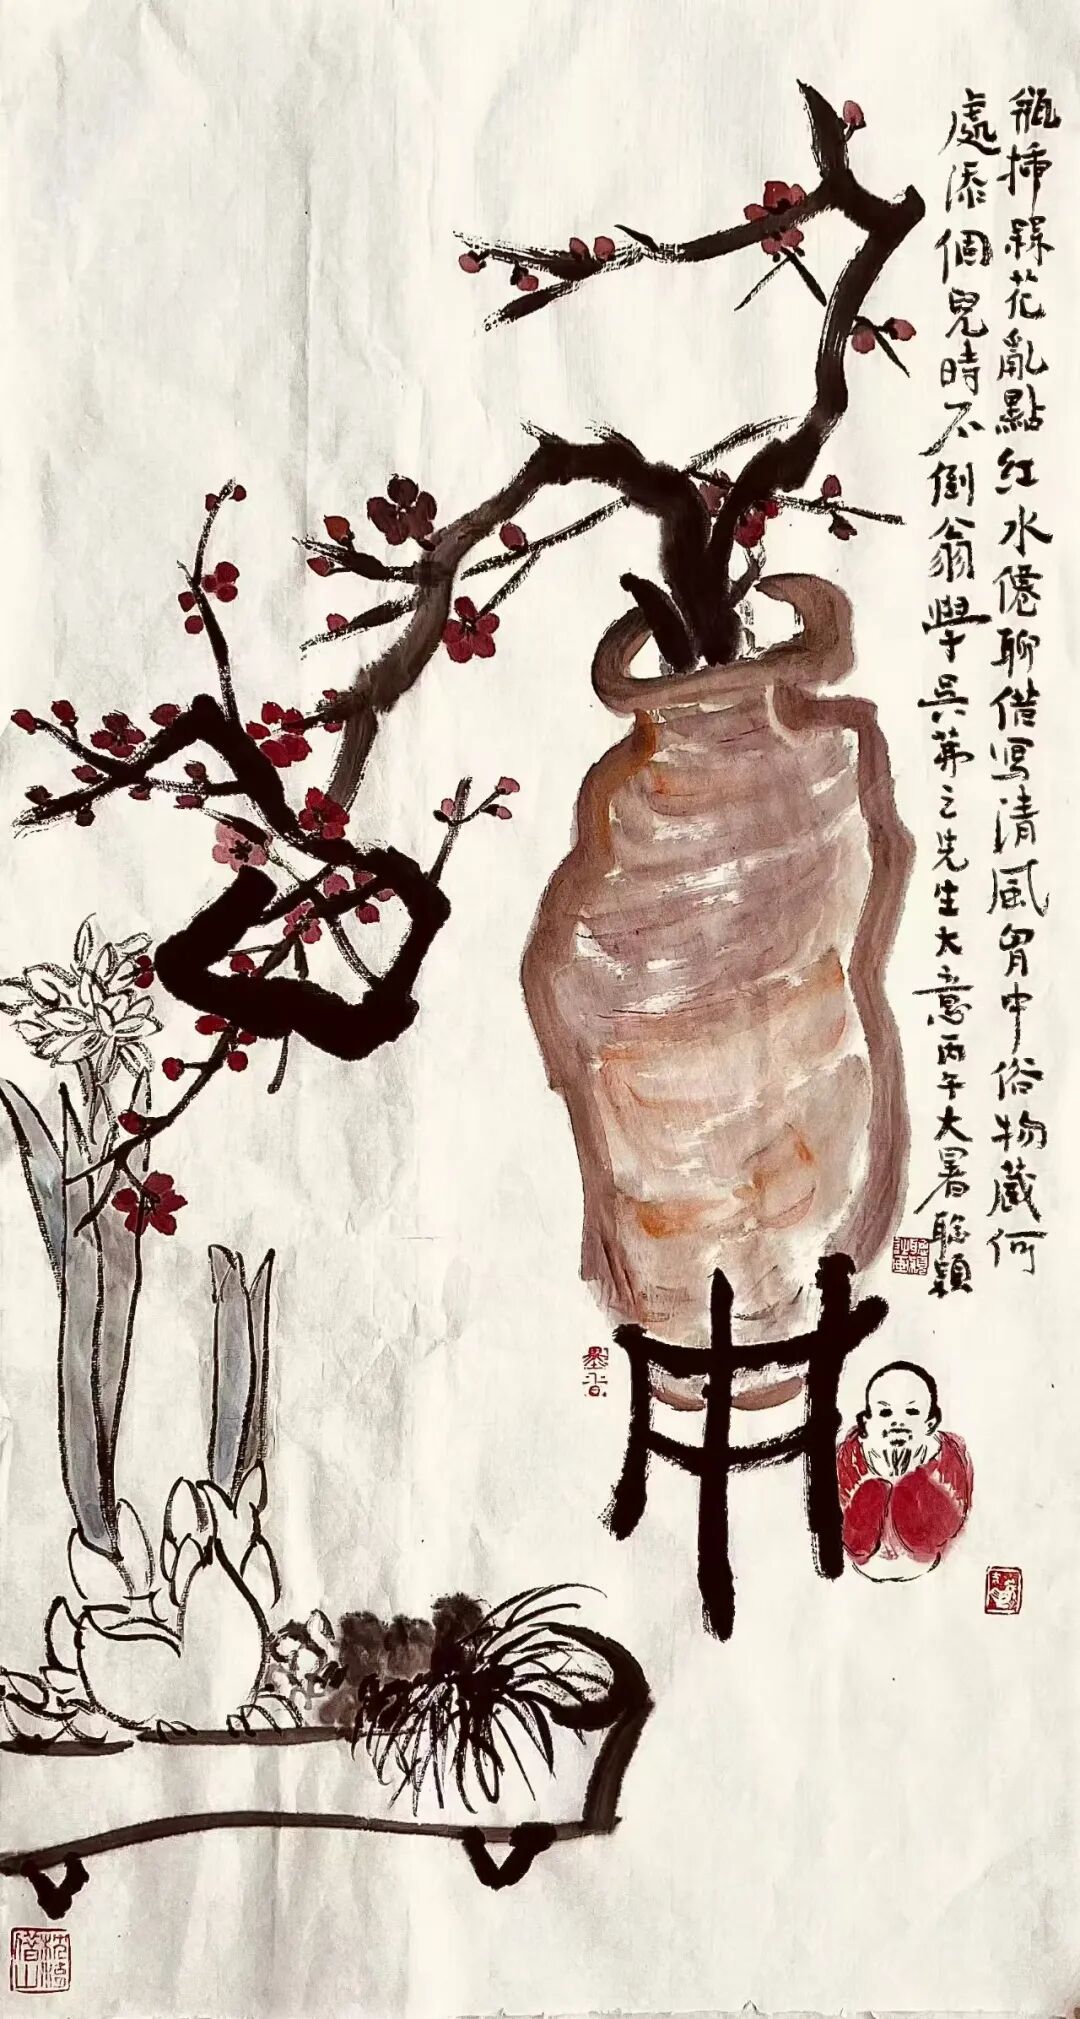 瓶插槑花亂點紅水僊聊借寫清風胷中俗物藏何
處添個兒時不倒翁學吳茀之先生大意丙午大暑聡穎